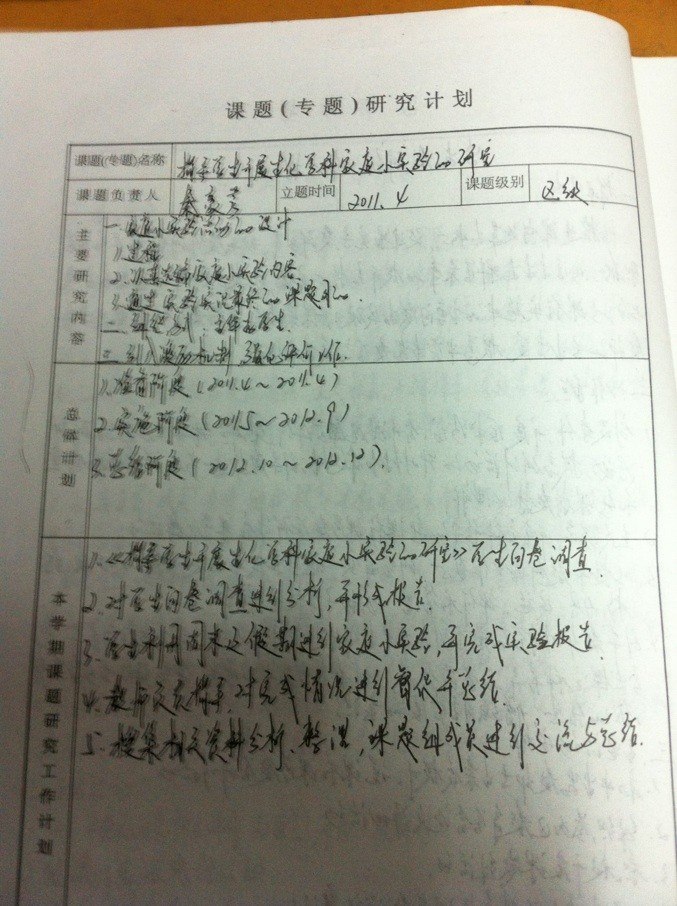 课题(专题)研究计划
课题(专题)名称 指导学生开展生化学科家庭小实验的研究
课题负责人 秦 立题时间 2011.4 课题级别 区级
主要研究内容
一 家庭小实验活动的设计
1.选
2.认真选编家庭小实验内容
3.通过实验实况最终的课题
二 主体为学生.
三 引入激励机制 强化评价
总体计划
1.准备阶段(2011.4~2011.4)
2.实施阶段(2011.5~2012.9)
3.总结阶段(2012.10~2012.12).
本学期课题研究工作计划
1.《指导学生开展生化学科家庭小实验的研究》学生问卷调查.
2.对学生问卷调查进行分析,并形成报告.
3.学生利用周末及假期进行家庭小实验,并完成实验报告.
4.教师交流指导,对完成情况进行督促并总结.
5.搜集相关资料分析、整理,课题组成员进行交流与总结.